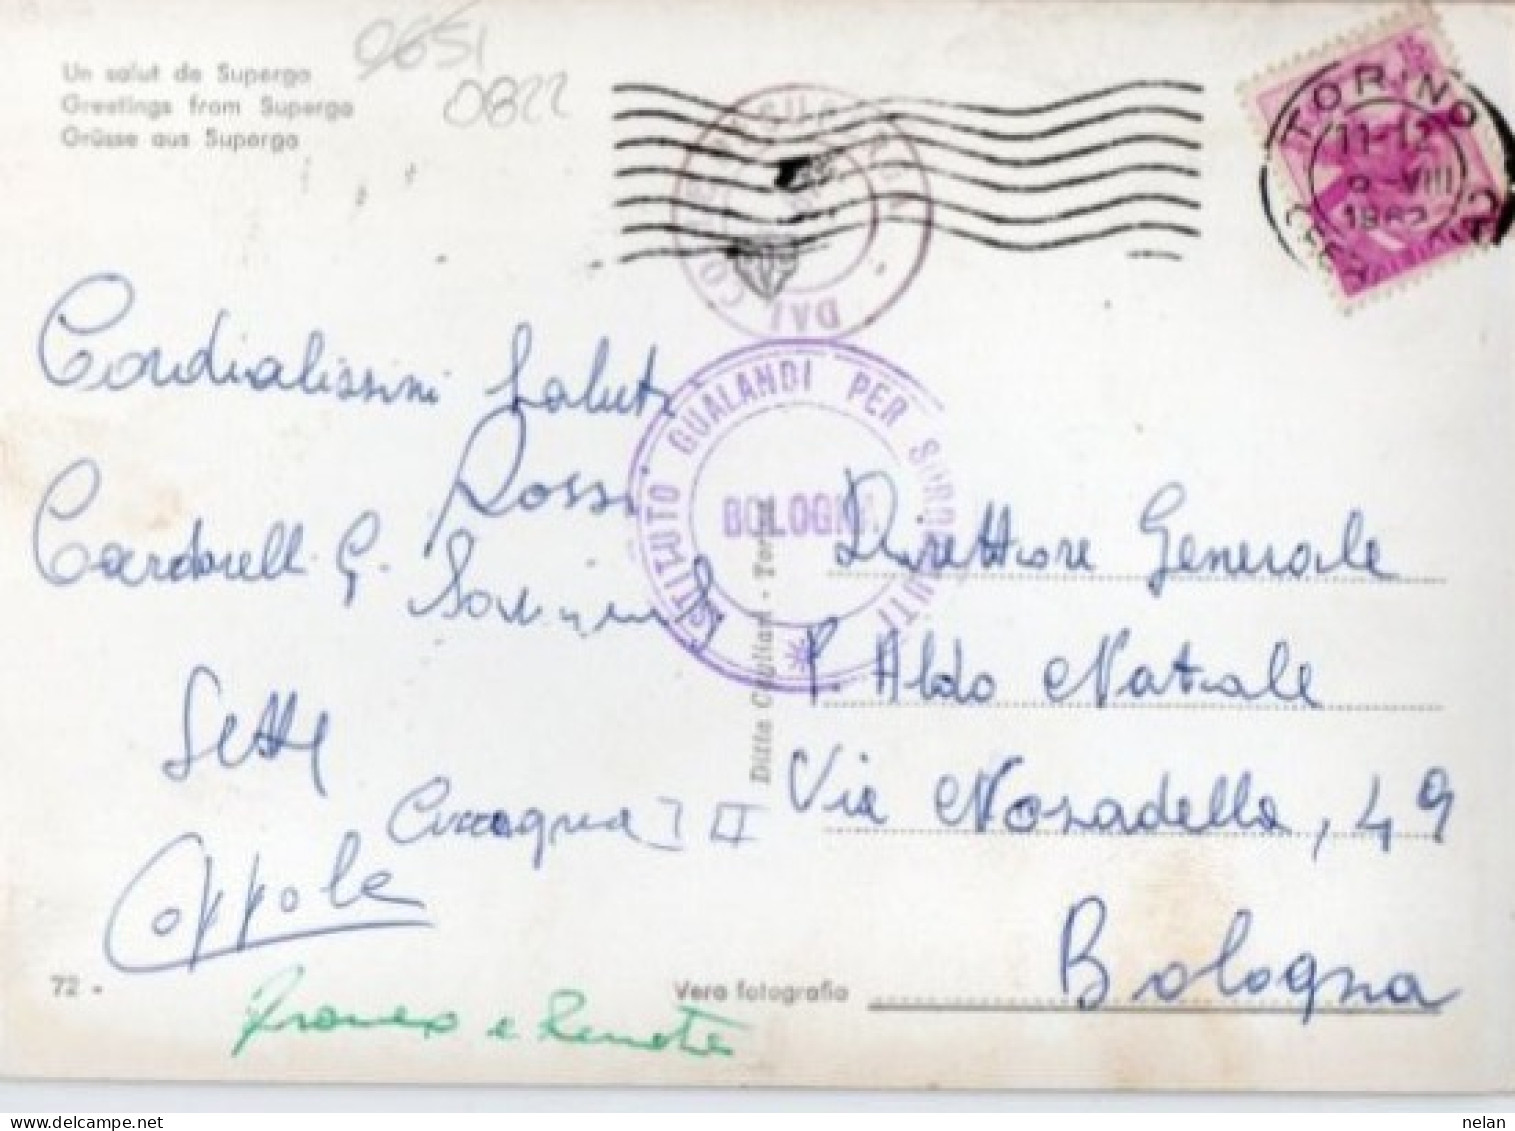 Un salut de Superga
Greetings from Superga
Grüsse aus Superga
0651
0822
15
TORINO
11-12
VIII
1962
DAL
ISTITUTO GUALANDI PER SORDOMUTI
BOLOGNA
Cordialissimi Saluti
Rossi
Cardarelli G.
Sette
Coppola
Franco e Renata
Ditta Cagliari - Torino
Direttore Generale
P. Aldo Natale
Via Nosadella, 49
Bologna
72 -
Vera fotografia
nelan